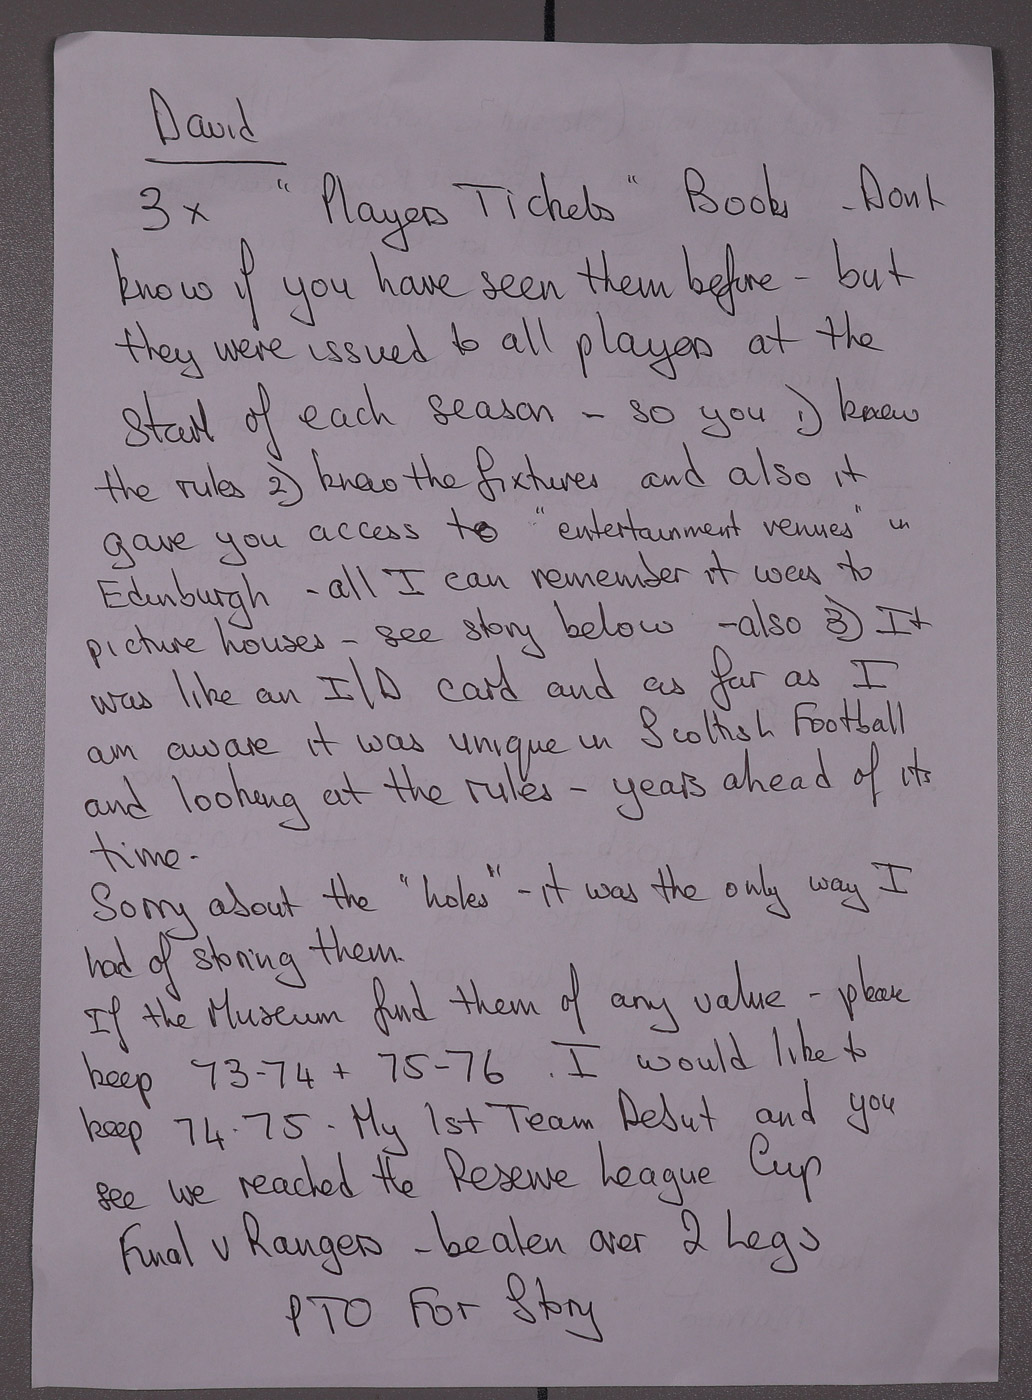 David
3 x " Players Tickets " Books - Dont
know if you have seen them before - but
they were issued to all players at the
start of each season - so you 1) knew
the rules 2) knew the fixtures and also it
gave you access to "entertainment venues" in
Edinburgh - all I can remember it was to
picture houses - see story below - also 3) It
was like an I/D card and as far as I
am aware it was unique in Scottish Football
and looking at the rules - years ahead of its
time.
Sorry about the "holes" - it was the only way I
had of storing them.
If the Museum find them of any value - please
keep 73-74 + 75-76 . I would like to
keep 74.75 . My 1st Team Debut and you
see we reached the Reserve League Cup
Final v Rangers - beaten over 2 Legs
PTO For Story